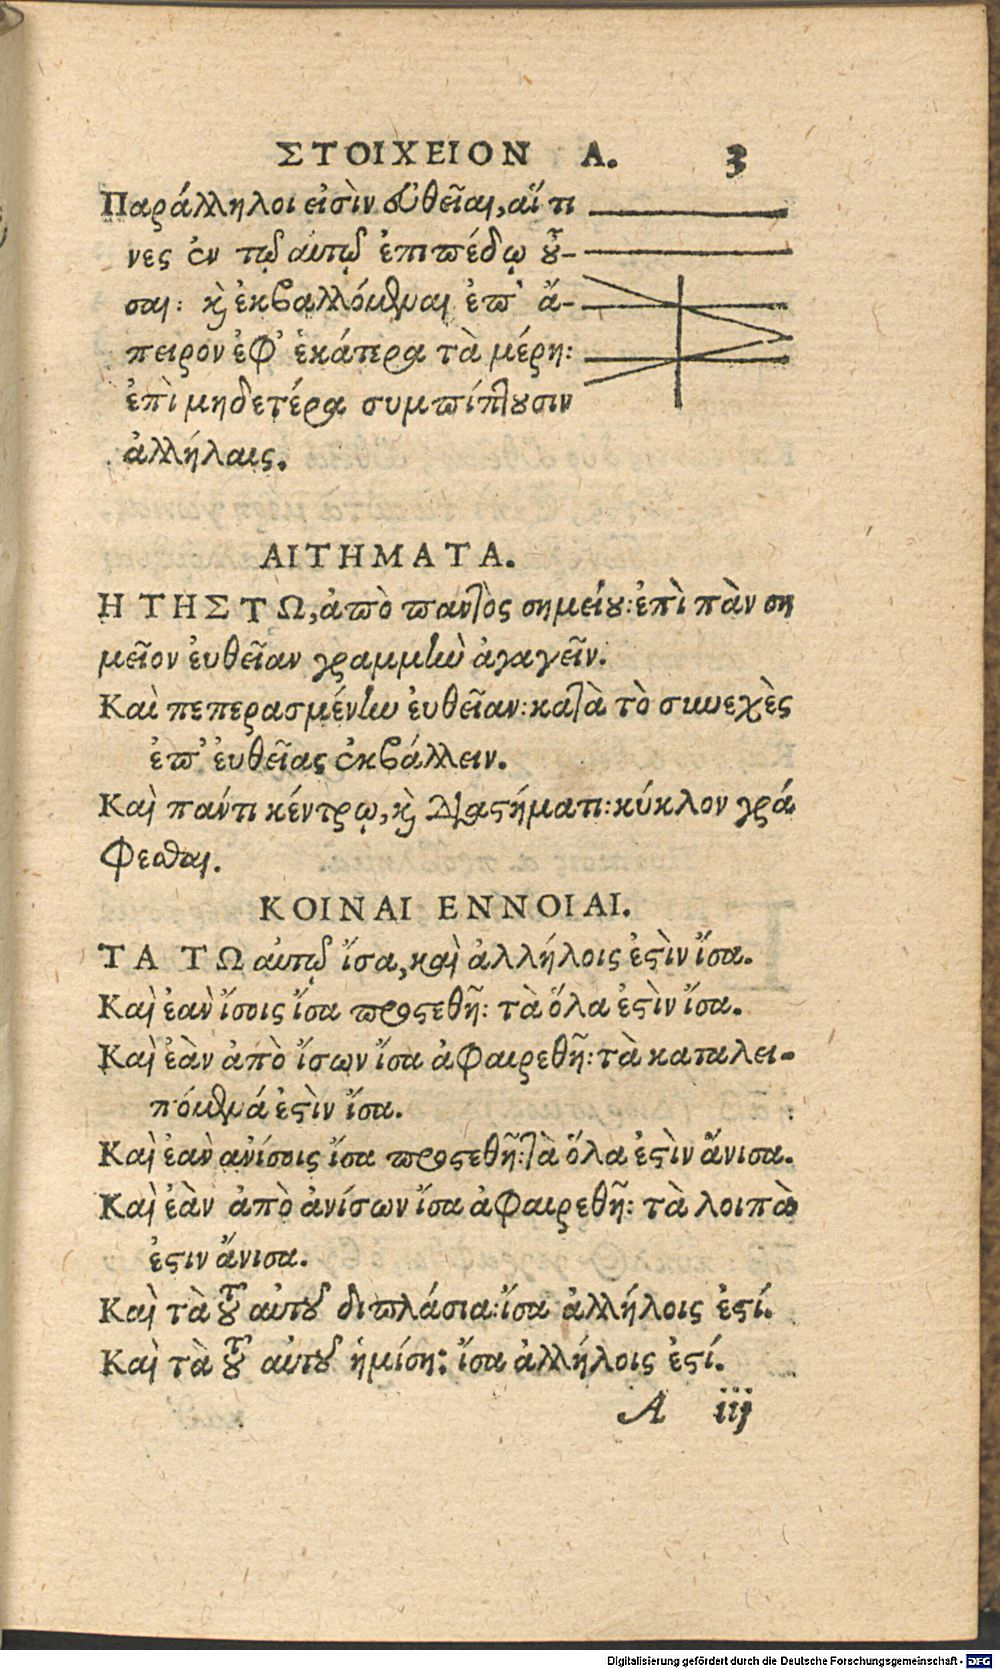 ΣΤΟΙΧΕΙΟΝ Α. 3
Παράλληλοι εἰσὶν εὐθεῖαι, αἵ τι
νες ἐν τῷ αὐτῷ ἐπιπέδῳ οὖ-
σαι: καὶ ἐκβαλλόμεναι ἐπ' ἄ-
πειρον ἐφ' ἑκάτερα τὰ μέρη:
ἐπὶ μηδετέρα συμπίπτουσιν
ἀλλήλαις.
ΑΙΤΗΜΑΤΑ.
ΗΤΗΣΤΩ, ἀπὸ παντὸς σημείου: ἐπὶ πὰν ση
μεῖον ἐυθεῖαν γραμμὴν ἀγαγεῖν.
Καὶ πεπερασμένην ἐυθεῖαν: κατὰ τὸ συνεχὲς
ἐπ' ἐυθεῖας ἐκβάλλειν.
Καὶ παντὶ κέντρῳ, καὶ διαστήματι: κύκλον γρά
φεσθαι.
ΚΟΙΝΑΙ ΕΝΝΟΙΑΙ.
ΤΑ ΤΩ αὐτῷ ἴσα, καὶ ἀλλήλοις ἐστὶν ἴσα.
Καὶ ἐὰν ἴσοις ἴσα προστεθῆ: τὰ ὅλα ἐστὶν ἴσα.
Καὶ ἐὰν ἀπὸ ἴσων ἴσα ἀφαιρεθῆ: τὰ καταλει-
πόμενά ἐστὶν ἴσα.
Καὶ ἐὰν ανίσοις ἴσα προστεθῆ: τὰ ὅλα ἐστὶν ἄνισα.
Καὶ ἐὰν ἀπὸ ἀνίσων ἴσα ἀφαιρεθῆ: τὰ λοιπὰ
ἐστιν ἄνισα.
Καὶ τὰ τοῦ αὐτοῦ διπλάσια: ἴσα ἀλλήλοις ἐστί.
Καὶ τὰ τοῦ αὐτοῦ ἡμίση: ἴσα ἀλλήλοις ἐστί.
A iij
Digitalisierung gefördert durch die Deutsche Forschungsgemeinschaft - DFG